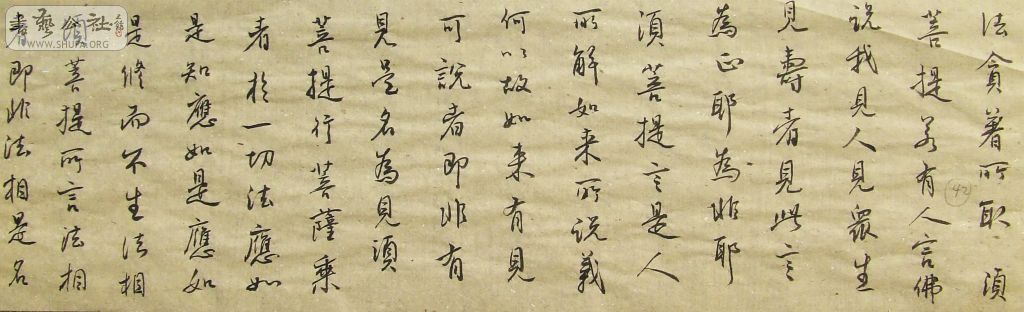 法貪著所取 須
菩提若有人言佛
說我見人見衆生
見壽者見此言
為正耶為非耶
須菩提言是人
所解如来所說義
何以故如来有見
可說者即非有
見是名為見須
菩提行菩薩乘
者於一切法應如
是知應如是應如
是修而不生法相
須菩提所言法相
者即非法相是名
42
WWW.SHUFA.ORG